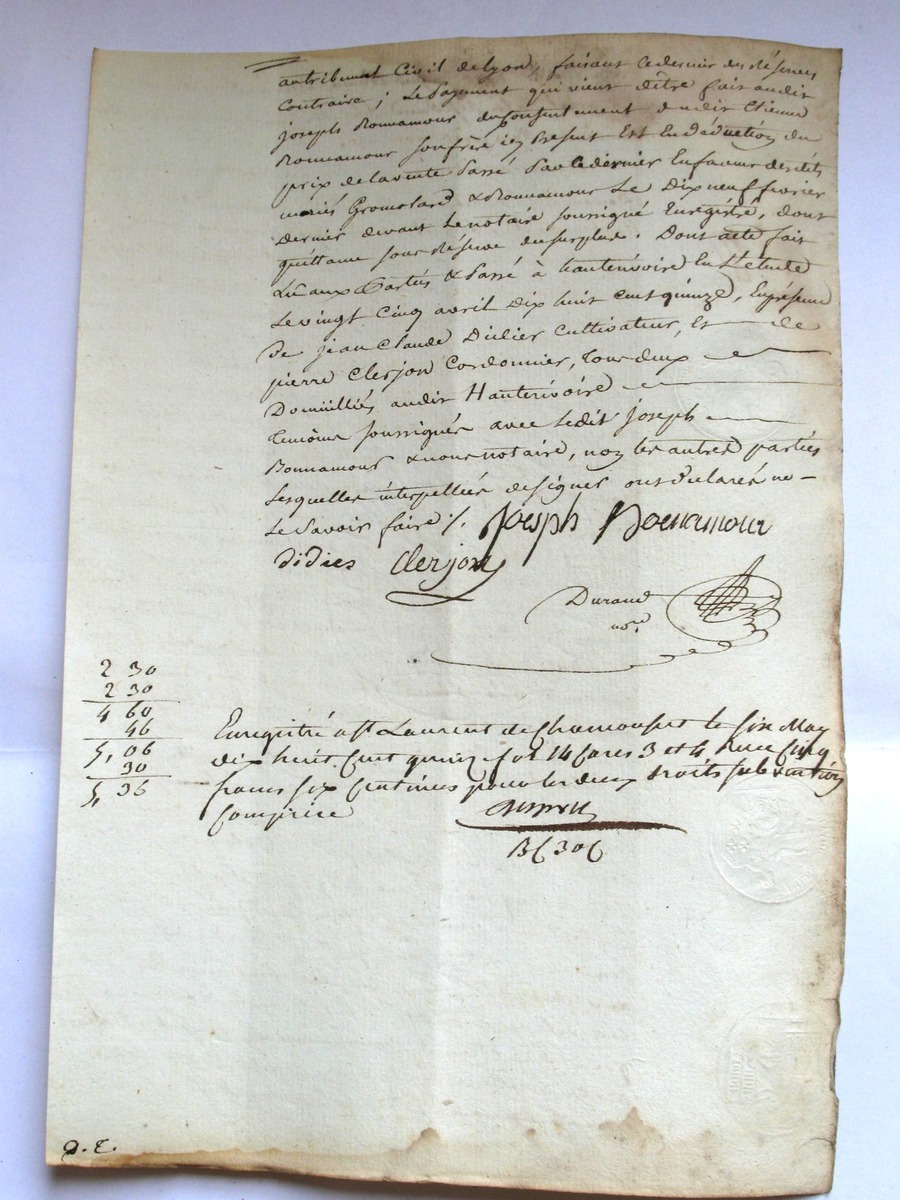 au tribunal Civil de Lyon, faisant ce dernier des Réserves
Contraire ; Le Payment qui vient d'être fait audit
joseph Bonnamour du Consentement dudit Etienne
Bonnamour son frère icy Présent Est En Déduction du
prix de la vente Passé Par le dernier En faveur des dits
mariés Gromolard & Bonnamour Le Dix neuf fevrier
dernier devant Le notaire soussigné Enregistré, dont
quittance sous Réserve du surplus. Dont acte fait
Lû aux Parties & Passé à hauterivoire En L'etude
Le vingt Cinq avril Dix huit cent quinze, En présence
de jean Claude Didier Cultivateur, Et de
pierre Clerjon Cordonnier, tous deux
Domiciliés audit Hauterivoire
temoins soussignés avec Ledit joseph
Bonnamour & nous notaire, non les autres parties
Lesquelles interpellées de signer ont déclaré ne
Le Savoir faire ;/. joseph Bonnamour
didies Clerjon
Durand
nore
2 30
2 30
4 60
46
5, 06
30
5, 36
Enregistré a St Laurent de Chamousset le six May
dix huit cent quinze fol 14 Cases 3 et 4 Reçu Cinq
francs six Centimes pour les deux droits subvention
Comprise